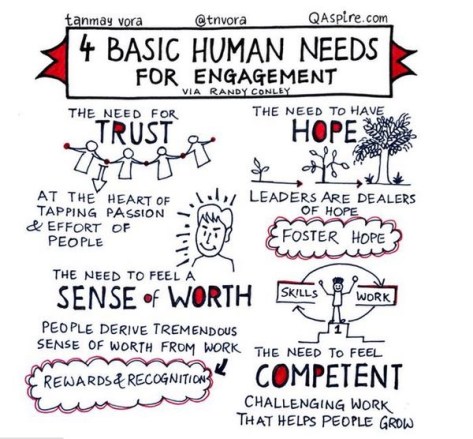 tanmay vora @tnvora QAspire.com
4 BASIC HUMAN NEEDS
FOR ENGAGEMENT
VIA RANDY CONLEY
THE NEED FOR
TRUST
AT THE HEART OF
TAPPING PASSION
& EFFORT OF
PEOPLE
THE NEED TO HAVE
HOPE
LEADERS ARE DEALERS
OF HOPE
FOSTER HOPE
THE NEED TO FEEL A
SENSE of WORTH
PEOPLE DERIVE TREMENDOUS
SENSE OF WORTH FROM WORK
REWARDS & RECOGNITION
SKILLS WORK
1
THE NEED TO FEEL
COMPETENT
CHALLENGING WORK
THAT HELPS PEOPLE GROW